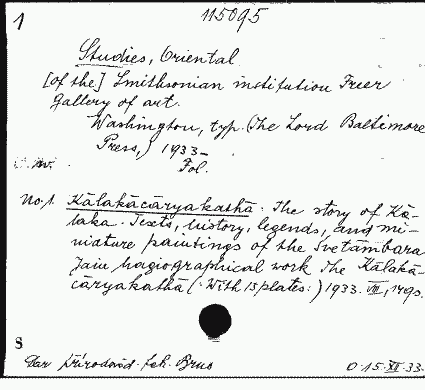 1
115095
Studies, Oriental
[of the] Smithsonian institution Freer
Gallery of art.
Washington, typ. (The Lord Baltimore
Press,) 1933-
Fol.
No. 1. Kālakācāryakathā. The story of Kā-
laka. Texts, history, legends, and mi-
niature paintings of the Śvetāmbara
Jain hagiographical work The Kālakā-
cāryakathā (: With 15 plates :) 1933. VIII, 149 p.
8
Dar přírodověd. fak. Brno
0.15.XI.33.